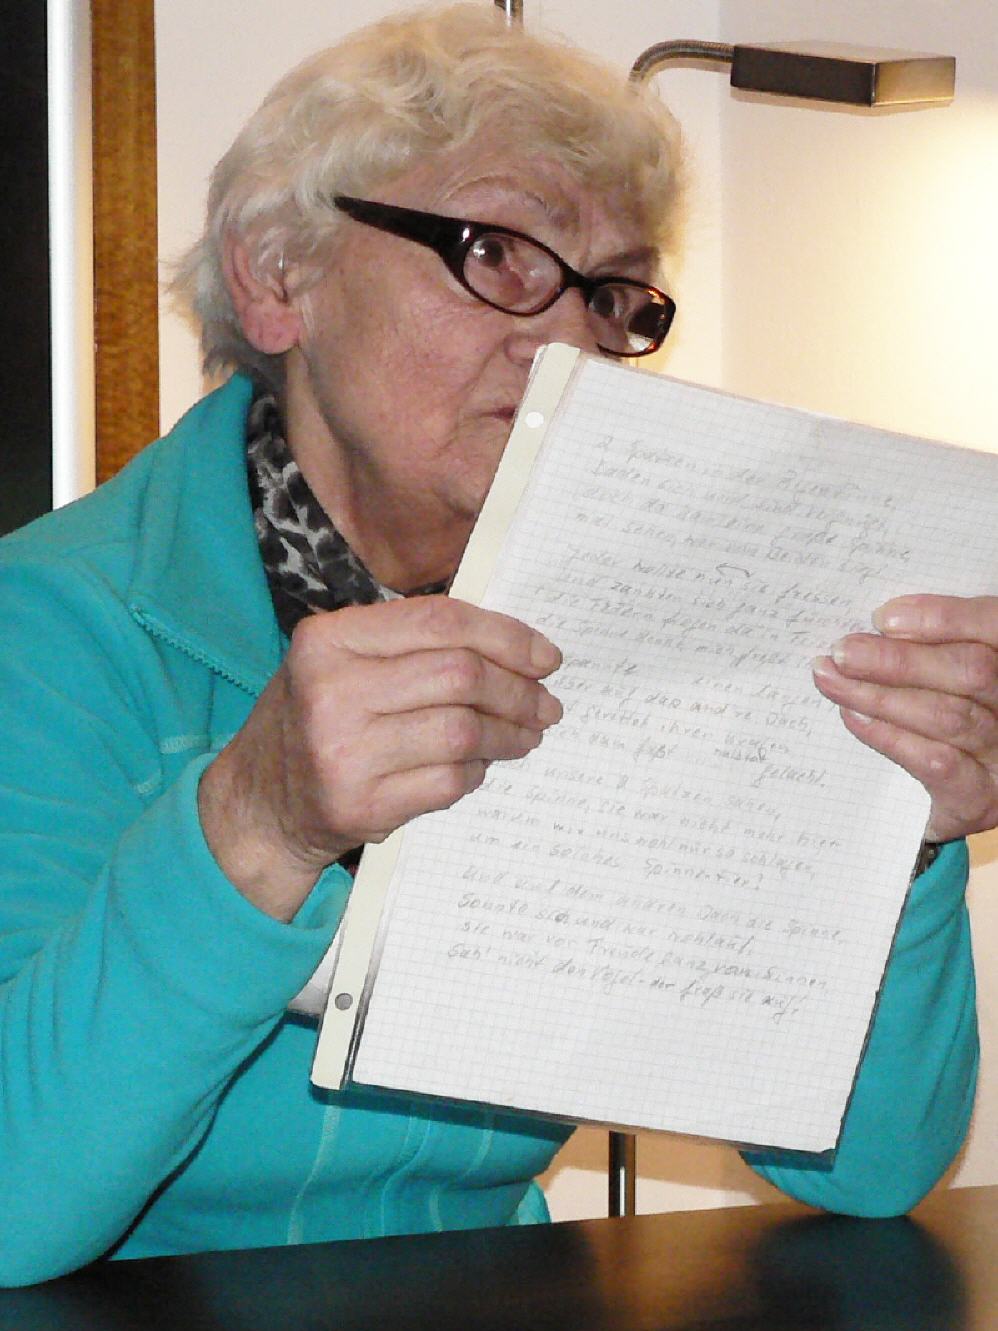 2 Spatzen in der Regenrinne,
baden sich und sind vergnügt,
doch da kam eine große Spinne
mal sehen, wer von Beiden siegt.
Jeder wollte nun sie fressen,
und zankten sich ganz
die Federn flogen da in
die Spinne denkt, mich freßt
spannte einen langen
auf das and're Dach,
ihren
sich dann fast gelacht.
unsere 2 Spatzen sahen,
die Spinne, sie war nicht mehr hier
warum wir uns wohl nur so schlagen,
um ein solches Spinnentier?
Und auf dem andren Dach die Spinne,
Sonnte sich und war wohlauf,
sie war vor Freude ganz von Sinnen,
Sah' nicht den Vogel - der fraß sie auf!